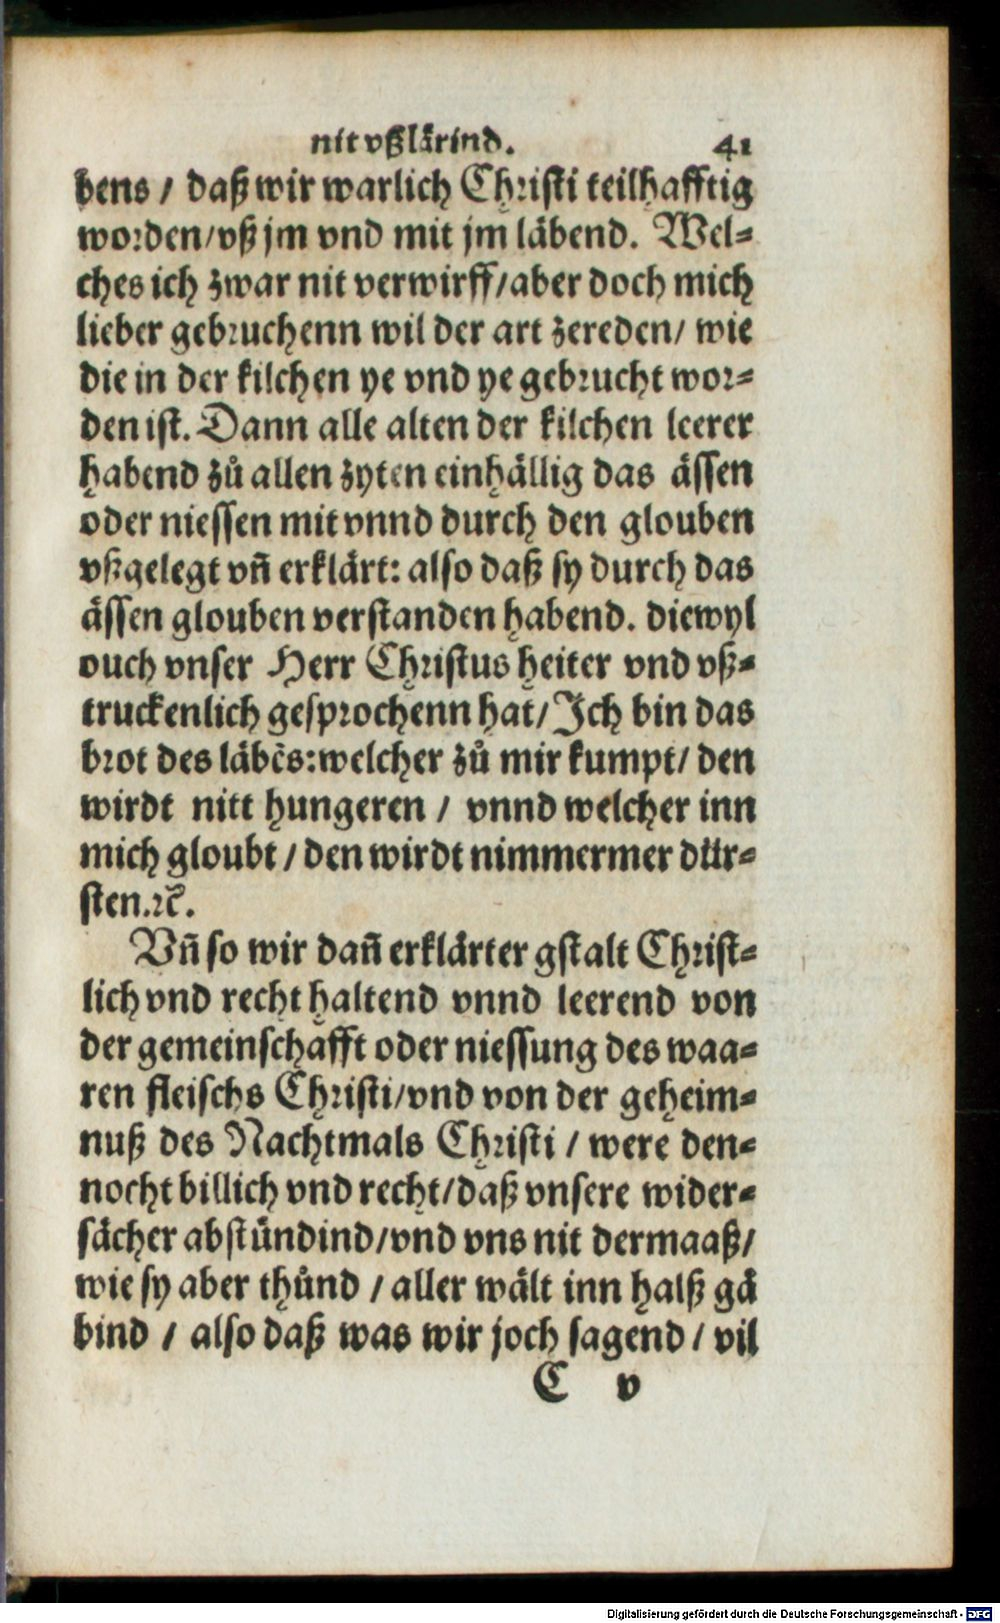 nit vßlårind. 41
bens / daß wir warlich Christi teilhafftig
worden/vß jm vnd mit jm låbend. Wel⸗
ches ich zwar nit verwirff/aber doch mich
lieber gebruchenn wil der art zereden/ wie
die in der kilchen ye vnd ye gebrucht wor⸗
den ist. Dann alle alten der kilchen leerer
habend zů allen zyten einhällig das ässen
oder niessen mit vnnd durch den glouben
vßgelegt vñ erklärt: also daß sy durch das
ässen glouben verstanden habend. diewyl
ouch vnser Herr Christus heiter vnd vß⸗
truckenlich gesprochenn hat/ Ich bin das
brot des läbēs: welcher zů mir kumpt/ den
wirdt nitt hungeren / vnnd welcher inn
mich gloubt / den wirdt nimmermer dür⸗
sten.ꝛc̄.
Vñ so wir dañ erklärter gstalt Christ⸗
lich vnd recht haltend vnnd leerend von
der gemeinschafft oder niessung des waa⸗
ren fleischs Christi/vnd von der geheim⸗
nuß des Nachtmals Christi / were den⸗
nocht billich vnd recht/daß vnsere wider⸗
sächer abstündind/vnd vns nit dermaaß/
wie sy aber thůnd / aller wält inn halß gå
bind / also daß was wir joch sagend / vil
C v
Digitalisierung gefördert durch die Deutsche Forschungsgemeinschaft - DFG